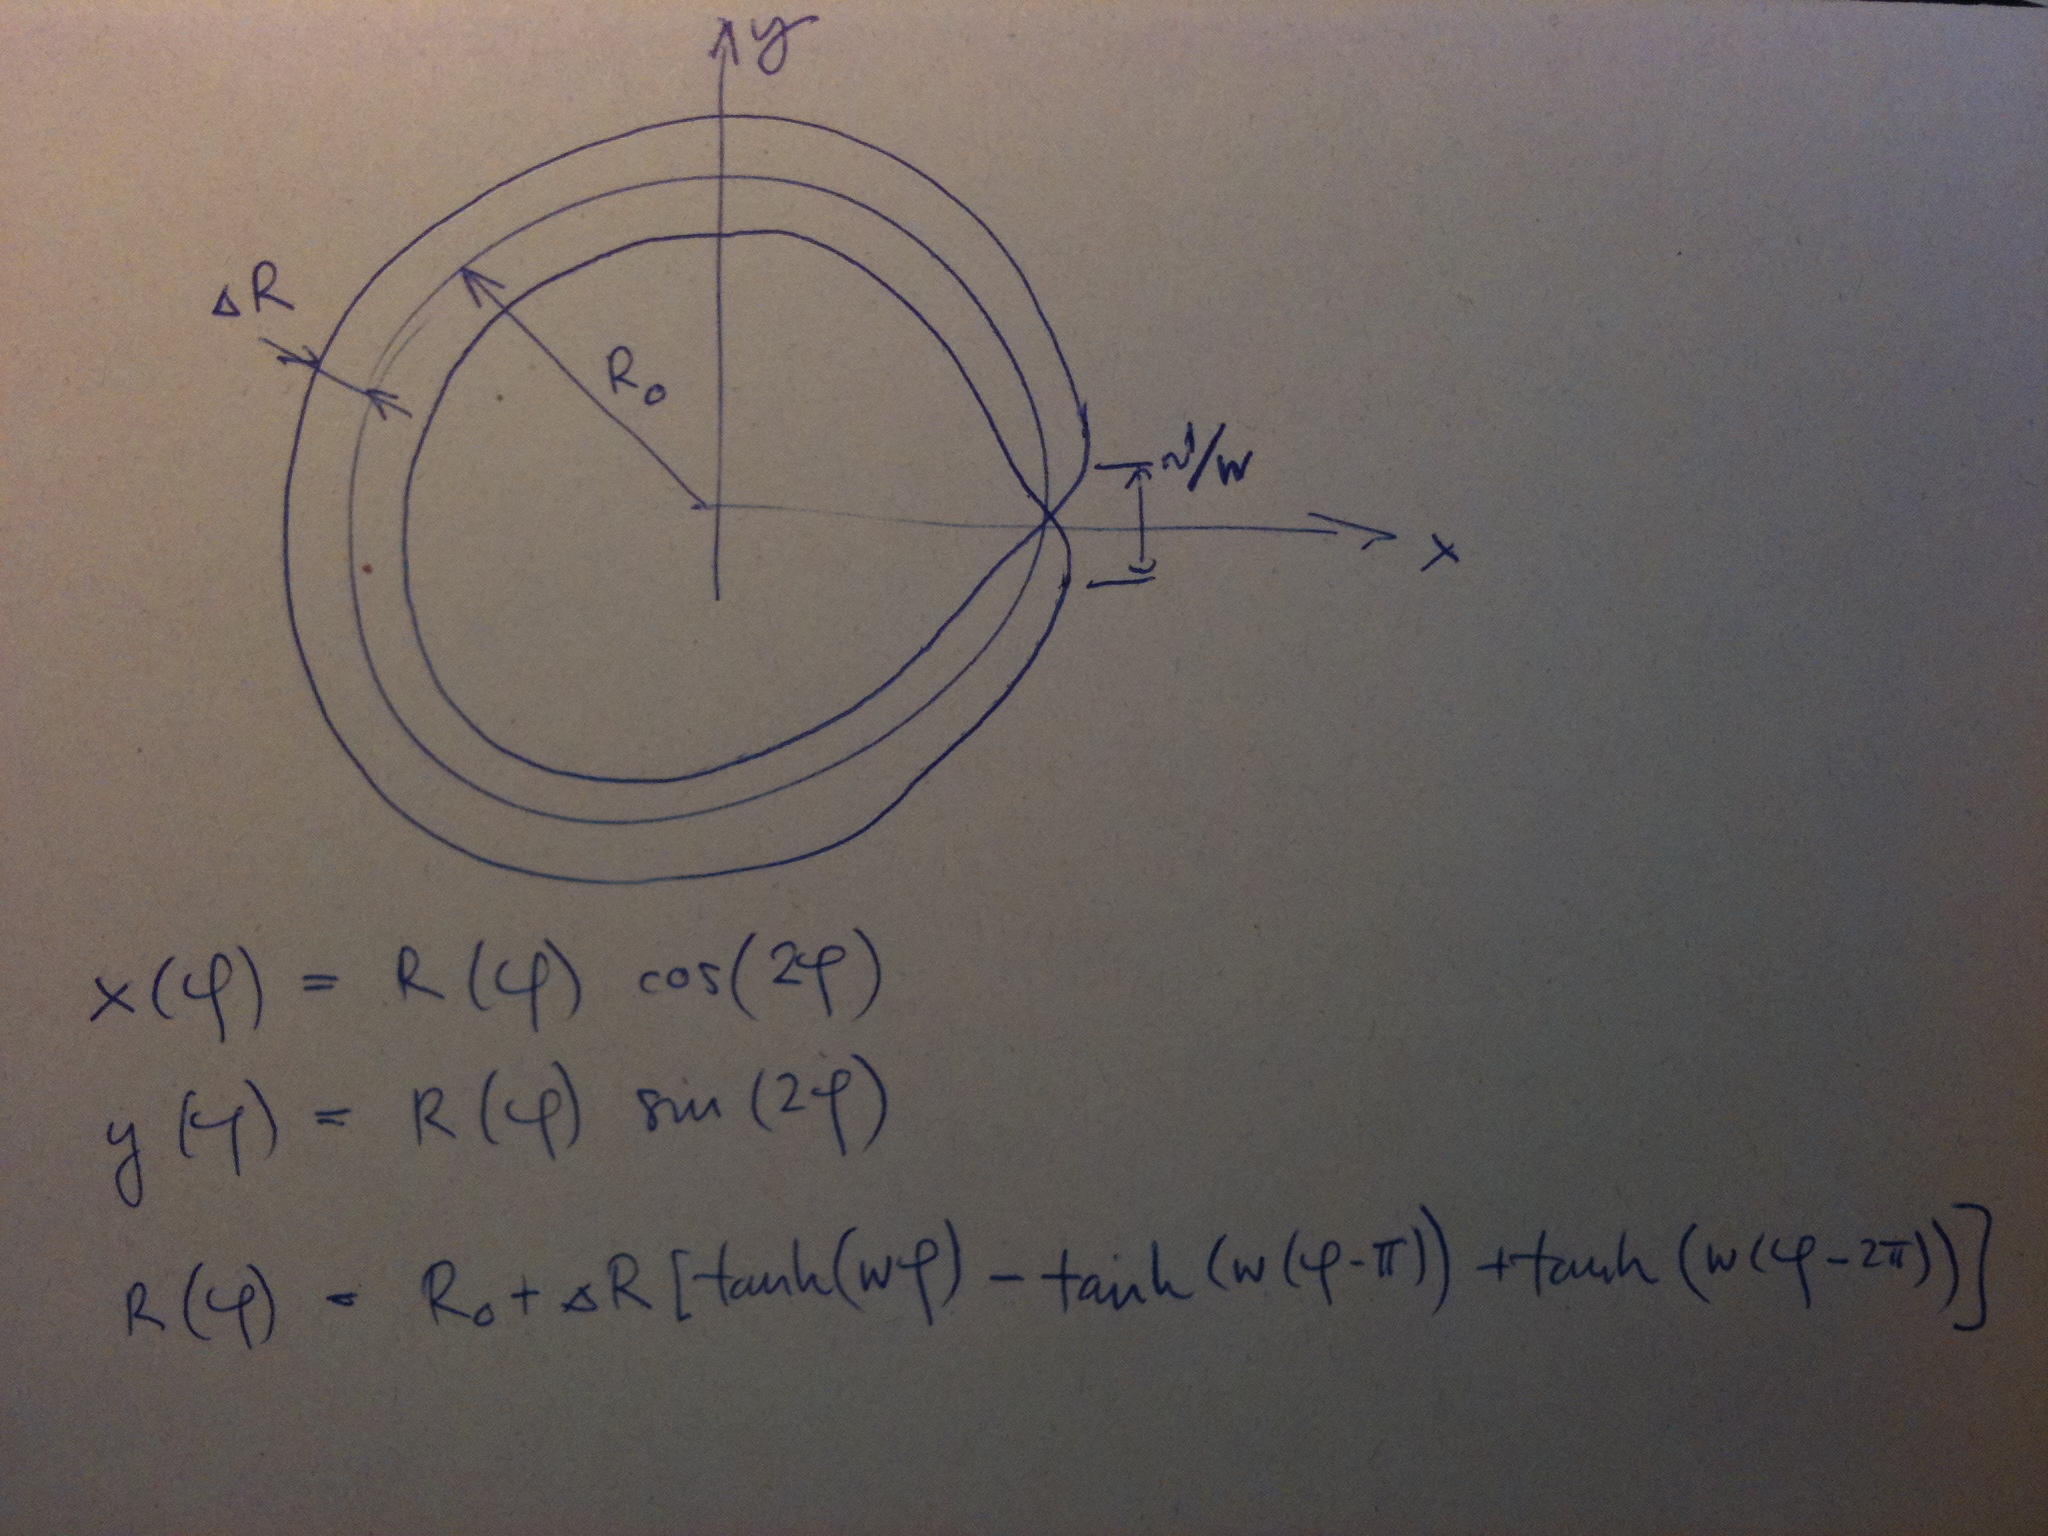 y
ΔR
R₀
~1/w
x
x(φ) = R(φ) cos(2φ)
y(φ) = R(φ) sin(2φ)
R(φ) = R₀ + ΔR [tanh(wφ) - tanh(w(φ-π)) + tanh(w(φ-2π))]